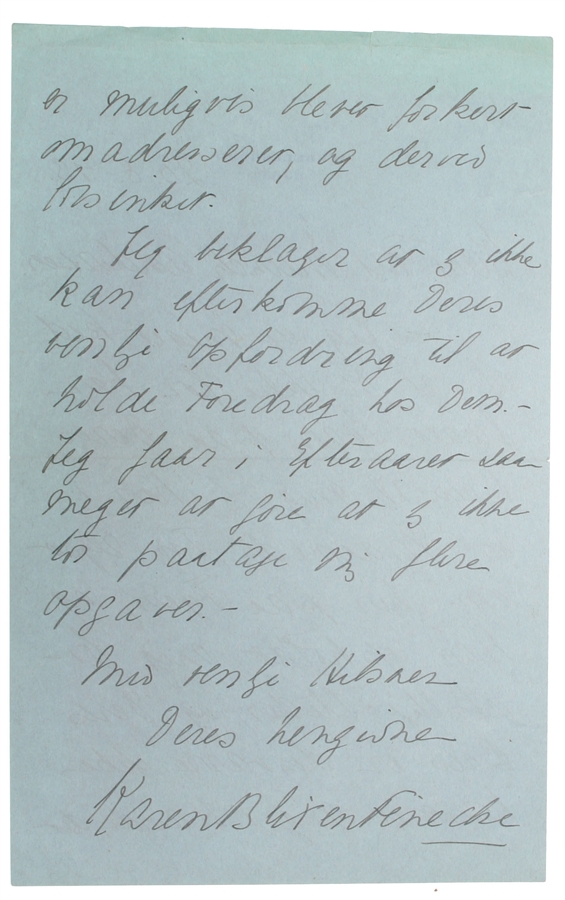 er muligvis blever forkert
omadresseret, og derved
forsinket.
Jeg beklager at jeg ikke
kan efterkomme Deres
venlige Opfordring til at
holde Foredrag hos Dem. –
Jeg faar i Efteraaret saa
meget at gøre at jeg ikke
tør paatage mig flere
opgaver. –
Med venlig Hilsner
Deres hengivne
Karen Blixen Finecke